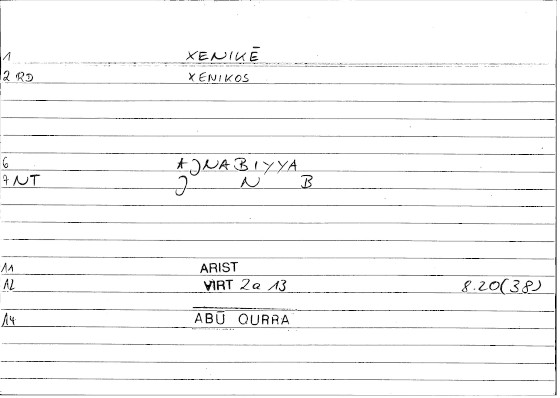 1 XENIKĒ
2 RD XENIKOS
6 AJNABIYYA
7 NT J N B
11 ARIST
12 VIRT 2a 13 8.20(38)
14 ABŪ QURRA